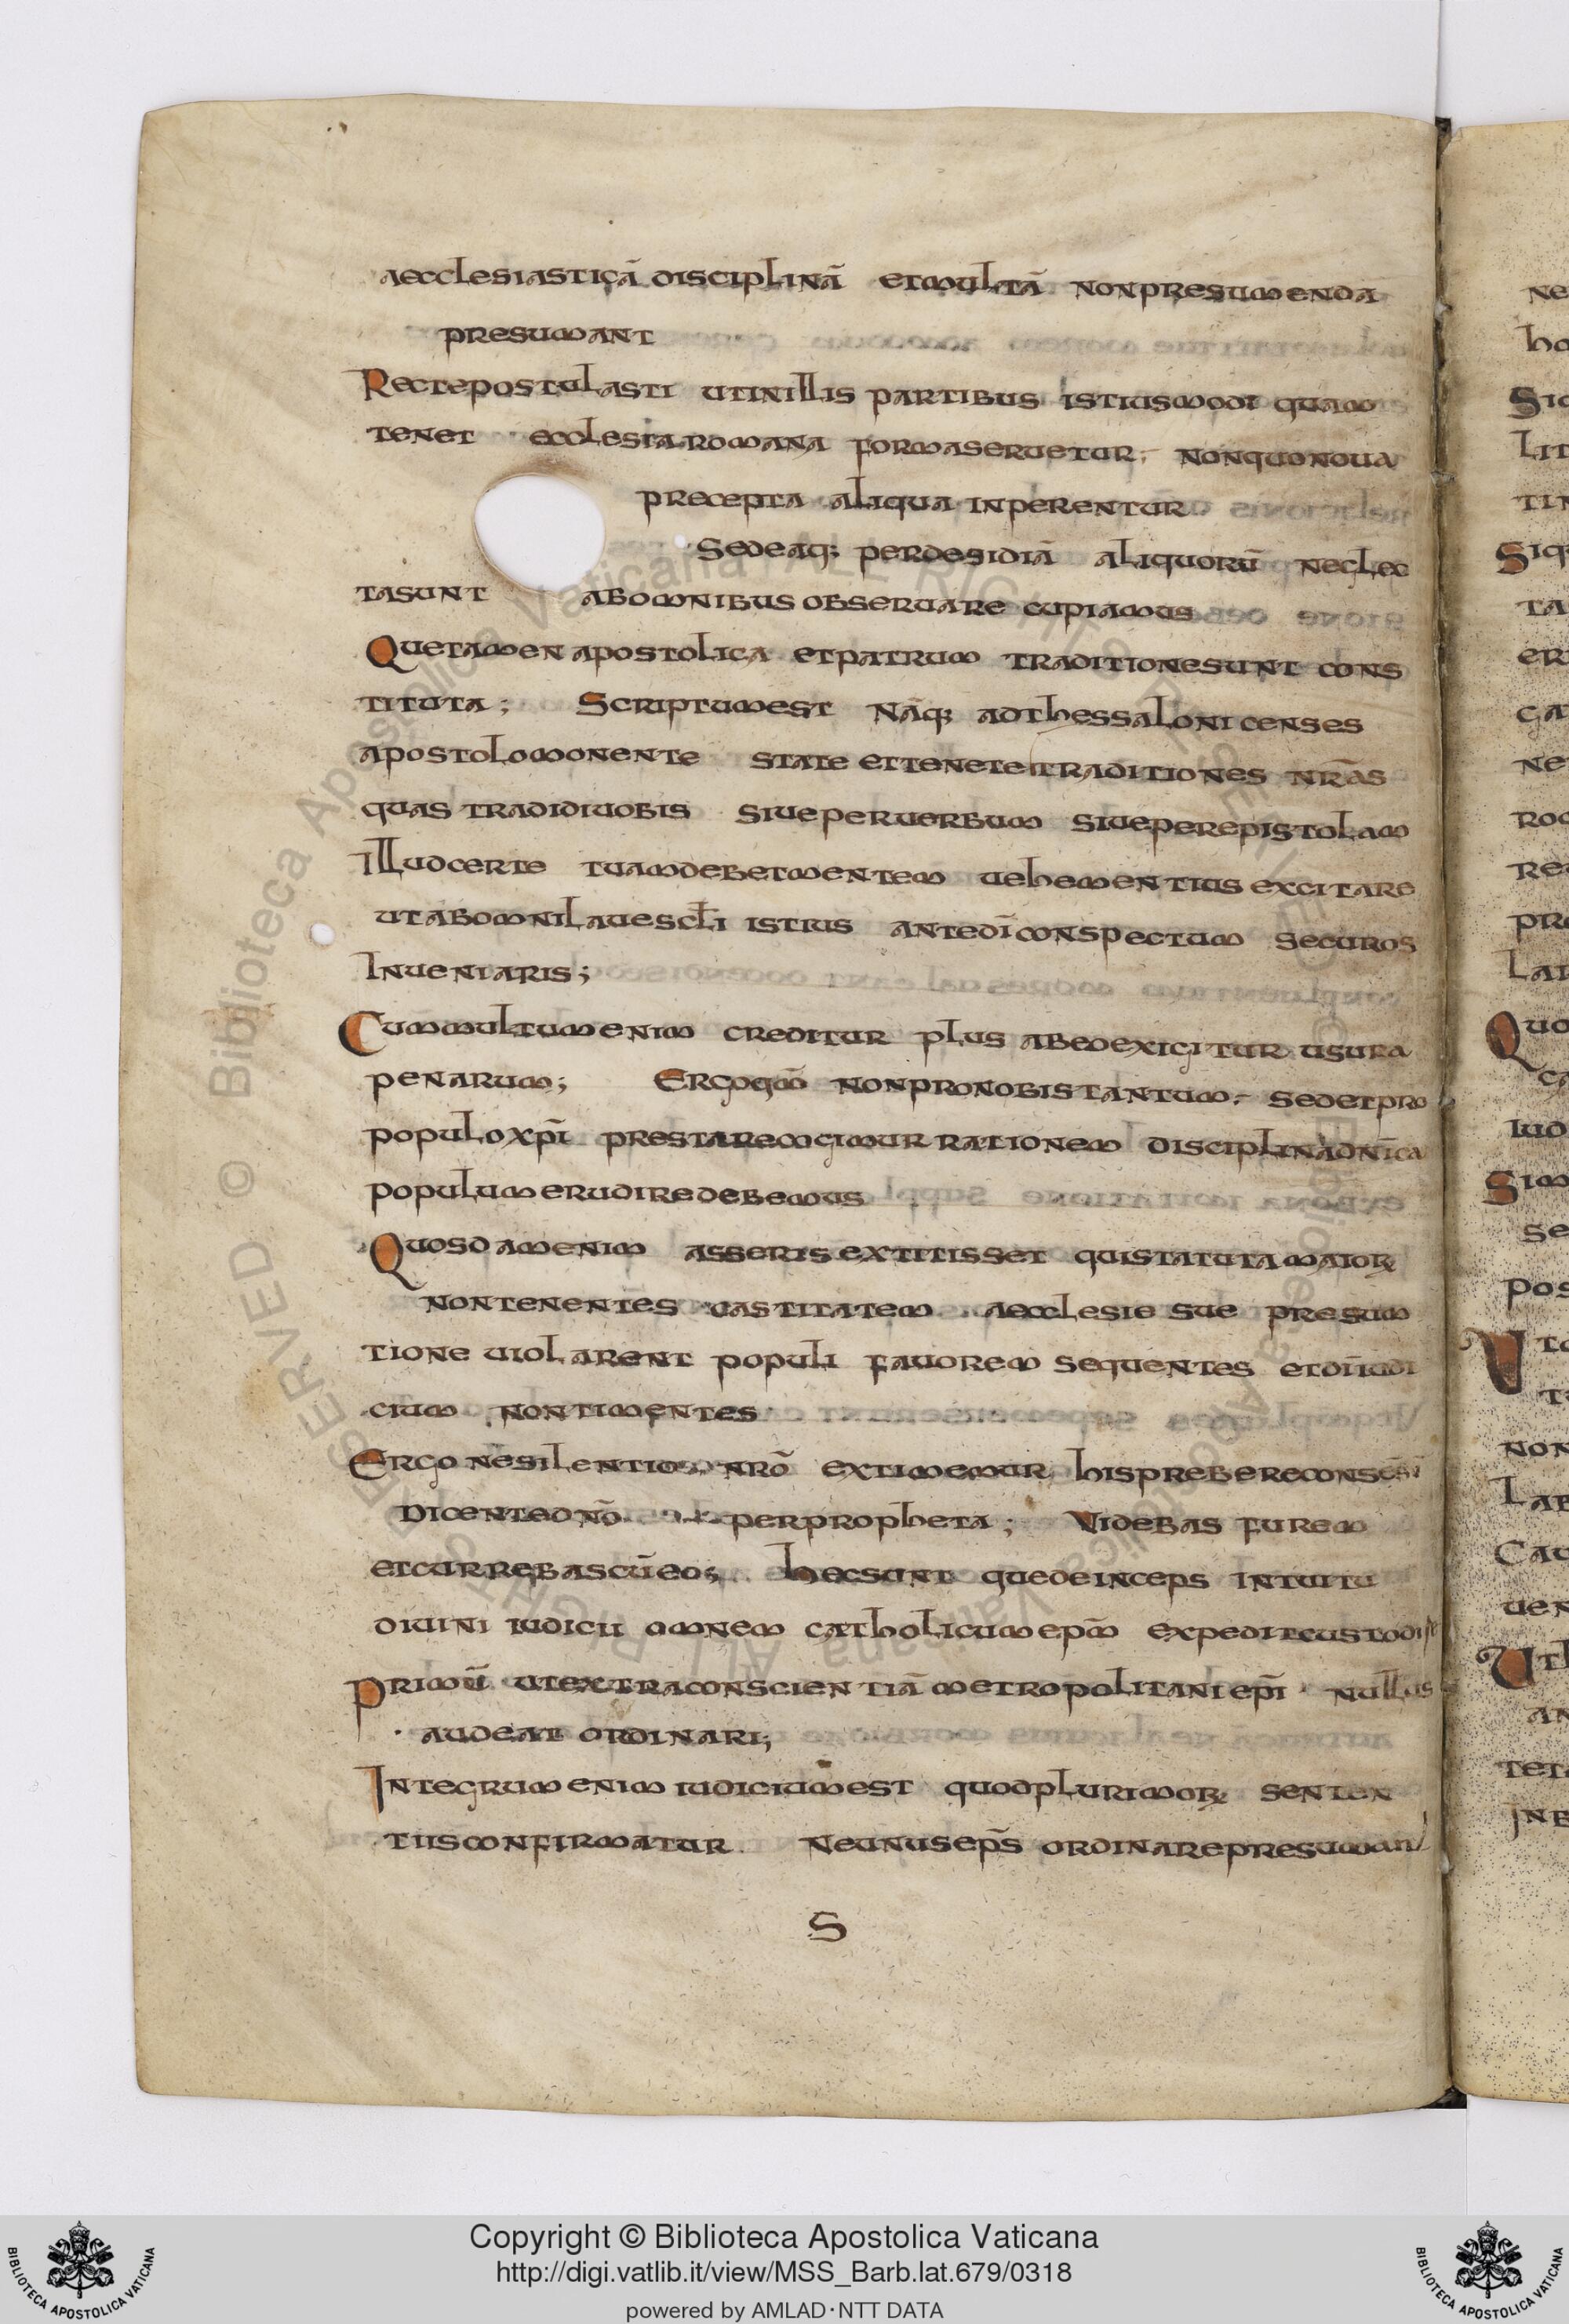 aecclesiasticā disciplinā et multā non presumenda
presumant
Recte postulasti ut in illis partibus istiusmodi quam
tenet ecclesia romana forma seruetur, non quo noua
precepta aliqua inperentur
Sed ea q; per desidiā aliquorū neclec
ta sunt ab omnibus obseruare cupiamus
Que tamen apostolica et patrum traditione sunt cons
tituta; Scriptum est nāq; ad thessalonicenses
apostolo monente state et tenete traditiones nr̄as
quas tradidi uobis siue per uerbum siue per epistolam
Illud certe tuam debet mentem uehementius excitare
ut ab omni laue sc̄li istius ante dī conspectum securos
Inueniaris;
Cum multum enim creditur plus ab eo exigitur usura
penarum; Ergo qm̄ non pro nobis tantum, sed et pro
populo xp̄i prestare cogimur rationem disciplina dn̄ica
populum erudire debemus
Quosdam enim asseris extitisset qui statuta maioꝝ
non tenentes castitatem aecclesie sue presum
tione uiolarent populi fauorem sequentes et dī iudi
cium non timentes
Ergo ne silentio nrō extimemur his prebere consēsū
Dicente dn̄o per propheta; Videbas furem
et currebas cū eo; hec sunt que deinceps intuitu
diuini iudicii omnem catholicum ep̄m expedit custodire
Primū ut extra conscientiā metropolitani ep̄i nullus
audeat ordinari;
Integrum enim iudicium est quod plurimoꝝ senten
tiis confirmatur Ne unus ep̄s ordinare presumant
S
ne
ho
Sic
Lit
tin
Siq
ta
er
ga
ne
roc
re
pro
Lat
Quo
ca
iud
Sim
se
pos
Ut
tu
non
Lab
Cau
uen
Uth
an
tet
Inb
Copyright © Biblioteca Apostolica Vaticana
http://digi.vatlib.it/view/MSS_Barb.lat.679/0318
powered by AMLAD·NTT DATA
BIBLIOTECA APOSTOLICA VATICANA
BIBLIOTECA APOSTOLICA VATICANA